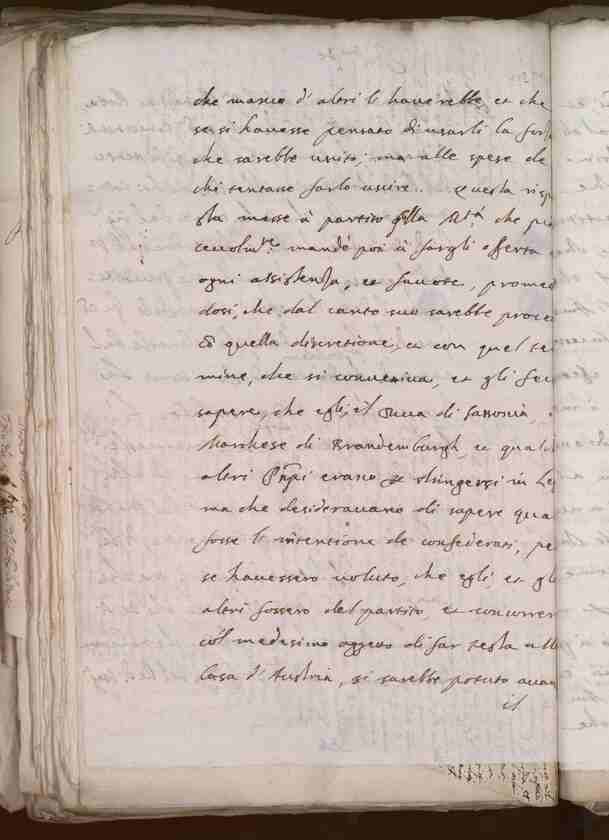 che manco d'altri l'haverebbe, et che
se si havesse pensato di usarli la for
che sarebbe unito; ma alle spese de
chi tentasse farlo uscire. Questa risp
sta messe à partito quella Mtà che
mandò poi à fargli offerta
ogni assistenza, et favore, promet
dosi, che dal canto suo sarebbe proce
quella discretione, et con quel te
mine, che si conveniva, et gli fe
sapere, che egli, il Duca di Sassonia,
Marchese di Brandemburgh, et qual
altri Pnpi erano stringersi in Le
ma che desideravano di sapere qua
fosse l'intentione de confederati, pe
se havessero voluto, che egli, et gl
altri fossero del partito, et concorrer
col medesimo oggetto di far testa all
Casa d'Austria, si sarebbe potuto avan
il